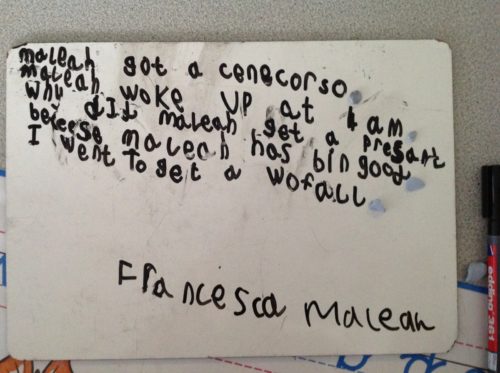 maleah got a cenecorso.
maleah woke up at 4 am.
Why did maleah get a presant
beceese maleah has bin good.
I went To get a wofall.
Francesca Maleah
edding 361